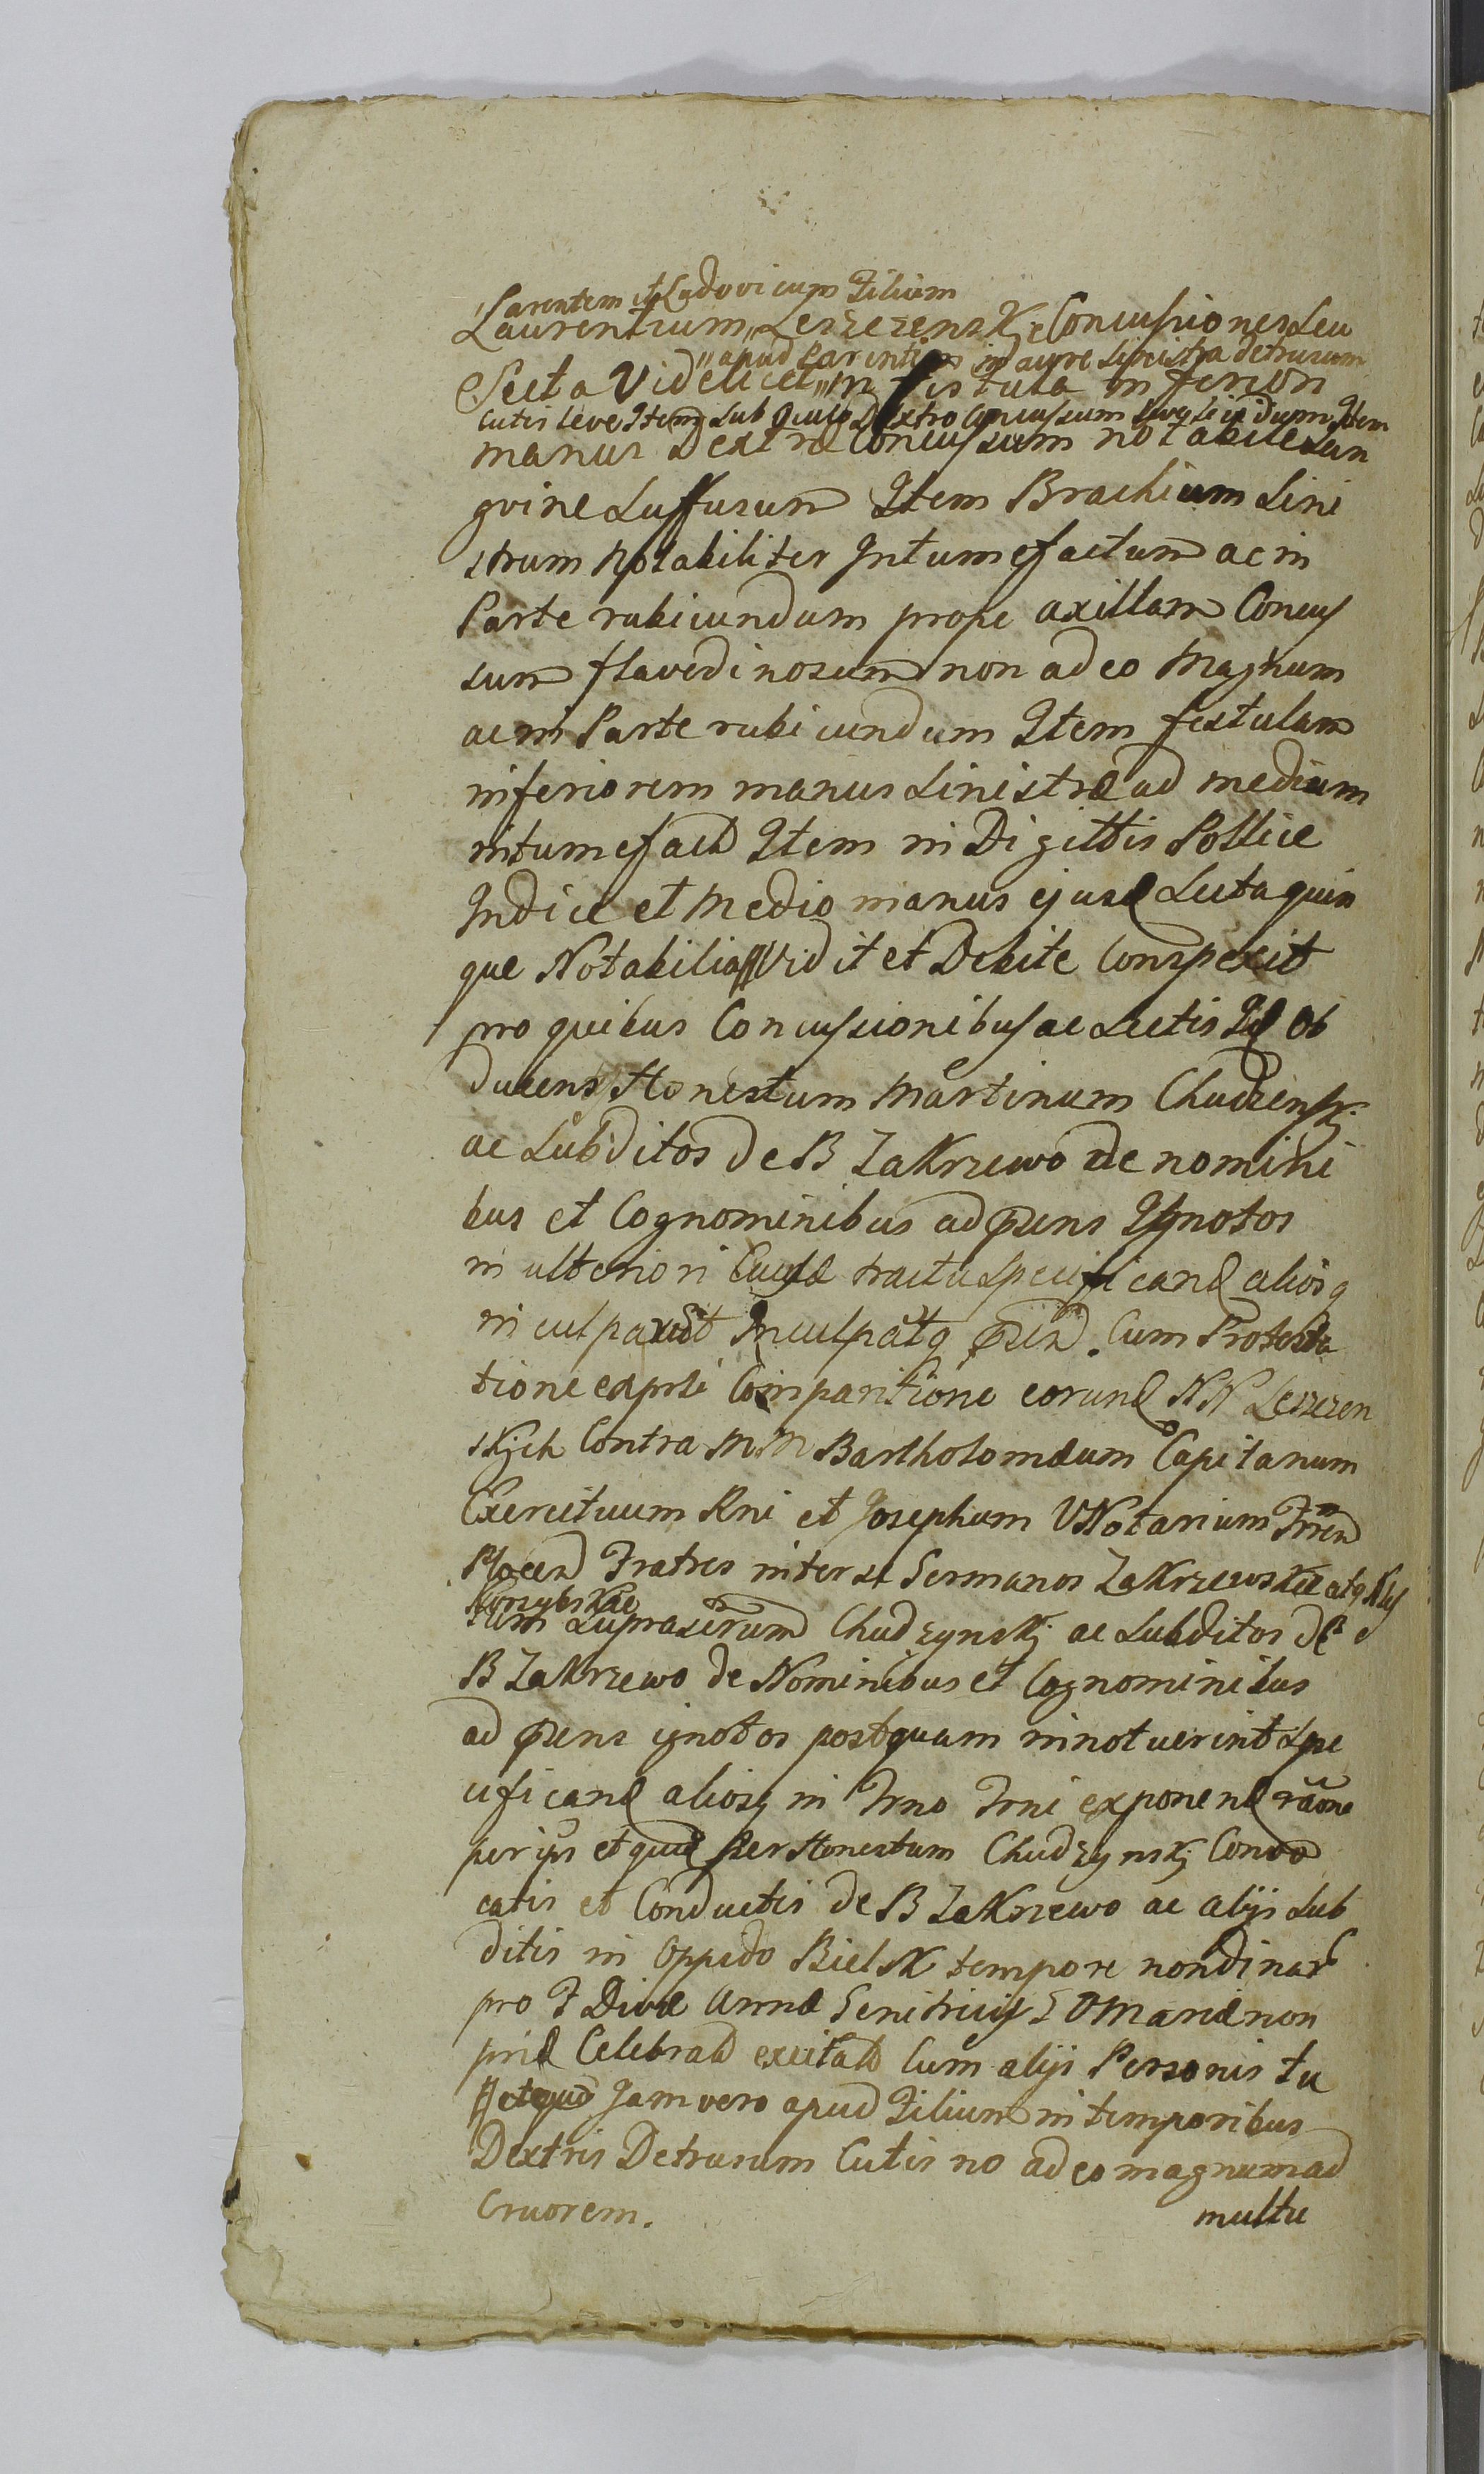 Parentem et Ludovicum Filium
Laurentium Leszczensk: Concussiones seu
apud Parentem in aure sinistra detrusum
Secta Videlicet in fistula inferiori
Cutis leve Item sub oculo Dextro Concussum livescidum Item
manus Dextræ Concussum notabile san
gvine suffusum Item Brachium sini
strum notabiliter Intumefactum ac in
Parte rubicundum prope axillam Concus
sum flavedinosum non adeo magnum
ac in Parte rubicundum Item fistulam
inferiorem manus sinistræ ad medium
intumefact Item in Digittis Pollice
Indice et medio manus ejusd Secta quin
que Notabilia Vidit et Debite Conspexit
pro quibus Concussionibus ac Sectis Id Ob
ducens Honestum Martinum Chudzensk:
ac Subditos de B Zakrzewo de nomini
bus et Cognominibus ad præns Ignotos
in ulteriori Causæ tractu specificand aliosq
inculpavit Inculpatq præn. Cum Protesta
tione exprsi Comparitione eorund NN Leszczen
skich Contra MM Bartholomæum Capitanum
Exercituum Rni et Josephum VNotarium Trren
Plocen Fratres inter se Germanos Zakrzewskie atq
Korzybskie
tum suprascrum Chudzynsk: ac Subditos de
B Zakrzewo de Nominibus et Cognominibus
ad præns ignotos postquam innotuerint spe
cificand aliosq in Trno Trni exponend raõne
per ips et quid per Honestum Chudzynsk: Convo
catis et Conductis de B Zakrzewo ac alijs Sub
ditis in Oppido Bielsk tempore nondinar
pro F Divæ Annæ Genitricis Mariæ non
prid Celebrat excitat Cum alijs Personis tu
Jam vero apud Filium in temporibus
Dextris Detrusum Cutis no adeo magnum ad
Cruorem.
multu